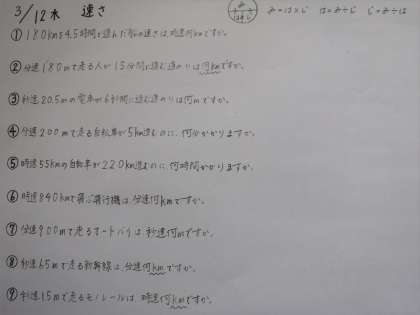 3/12木 速さ
み
はじ
み=は×じ は=み÷じ じ=み÷は
①180kmを4.5時間で進んだ船の速さは時速何kmですか。
②分速180mで走る人が15分間に進む道のりは何kmですか。
③秒速20.5mの電車が6秒間に進む道のりは何mですか。
④分速200mで走る自転車が5km進むのに、何分かかりますか。
⑤時速55kmの自動車が220km進むのに、何時間かかりますか。
⑥時速840kmで飛ぶ飛行機は、分速何kmですか。
⑦分速900mで走るオートバイは、秒速何mですか。
⑧秒速65mで走る新幹線は、分速何kmですか。
⑨秒速15mで走るモノレールは、時速何kmですか。